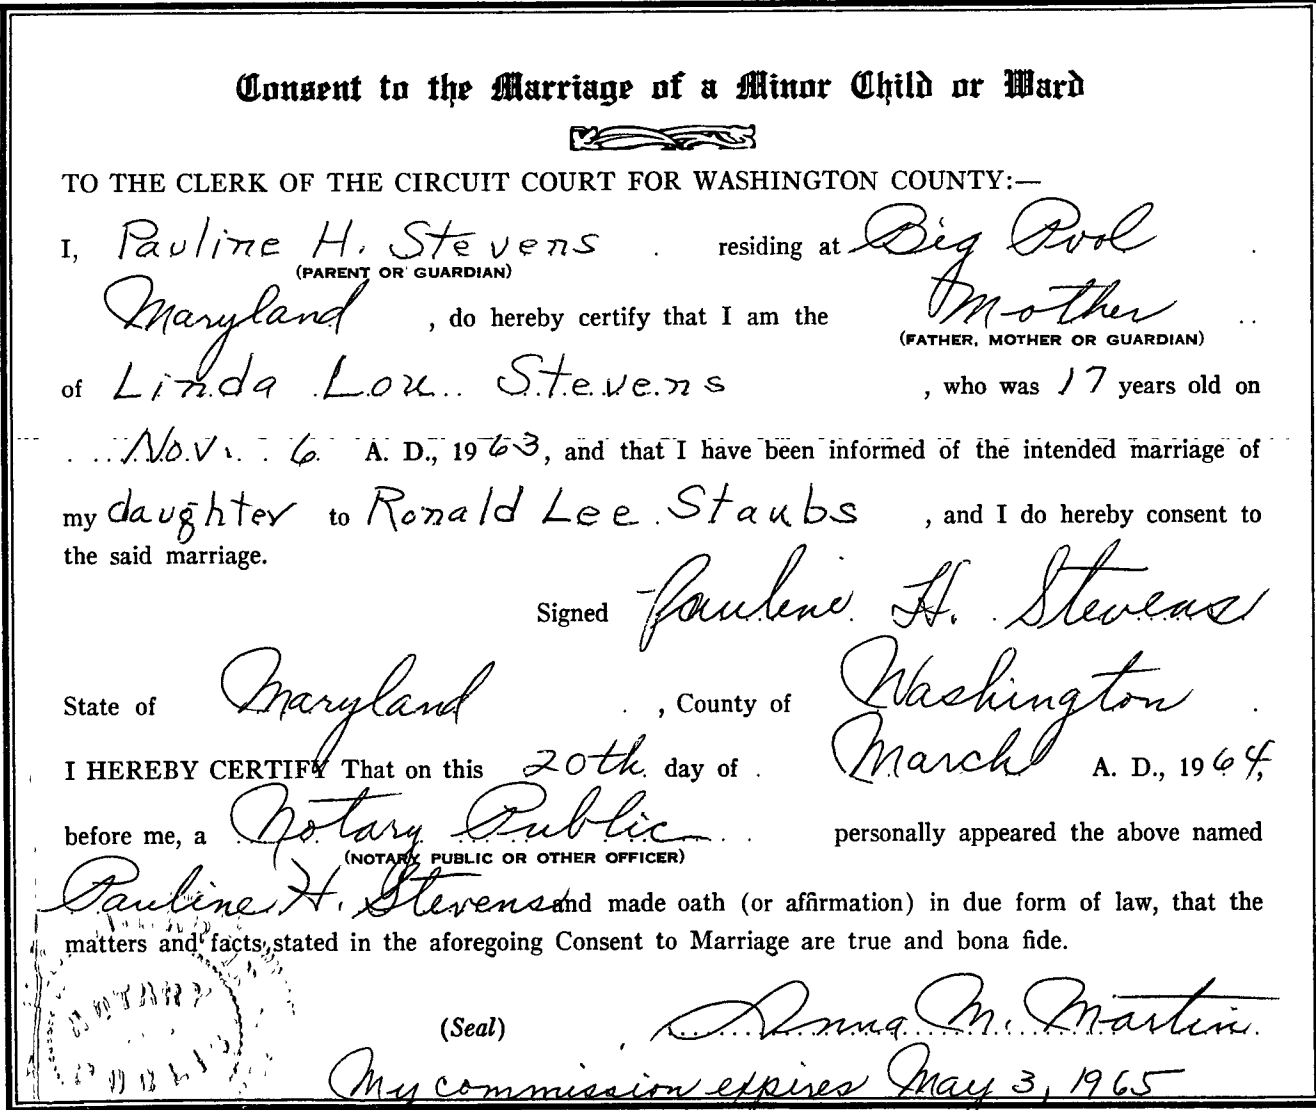 Consent to the Marriage of a Minor Child or Ward
TO THE CLERK OF THE CIRCUIT COURT FOR WASHINGTON COUNTY:—
I, Pauline H. Stevens residing at Big Pool
(PARENT OR GUARDIAN)
Maryland, do hereby certify that I am the Mother
(FATHER, MOTHER OR GUARDIAN)
of Linda Lou Stevens, who was 17 years old on
Nov. 6 A. D., 1963, and that I have been informed of the intended marriage of
my daughter to Ronald Lee Staubs, and I do hereby consent to
the said marriage.
Signed Pauline H. Stevens
State of Maryland, County of Washington
I HEREBY CERTIFY That on this 20th day of March A. D., 1964,
before me, a Notary Public personally appeared the above named
(NOTARY PUBLIC OR OTHER OFFICER)
Pauline H. Stevens and made oath (or affirmation) in due form of law, that the
matters and facts stated in the aforegoing Consent to Marriage are true and bona fide.
(Seal) Anna M. Martin
My commission expires May 3, 1965
NOTARY
PUBLIC